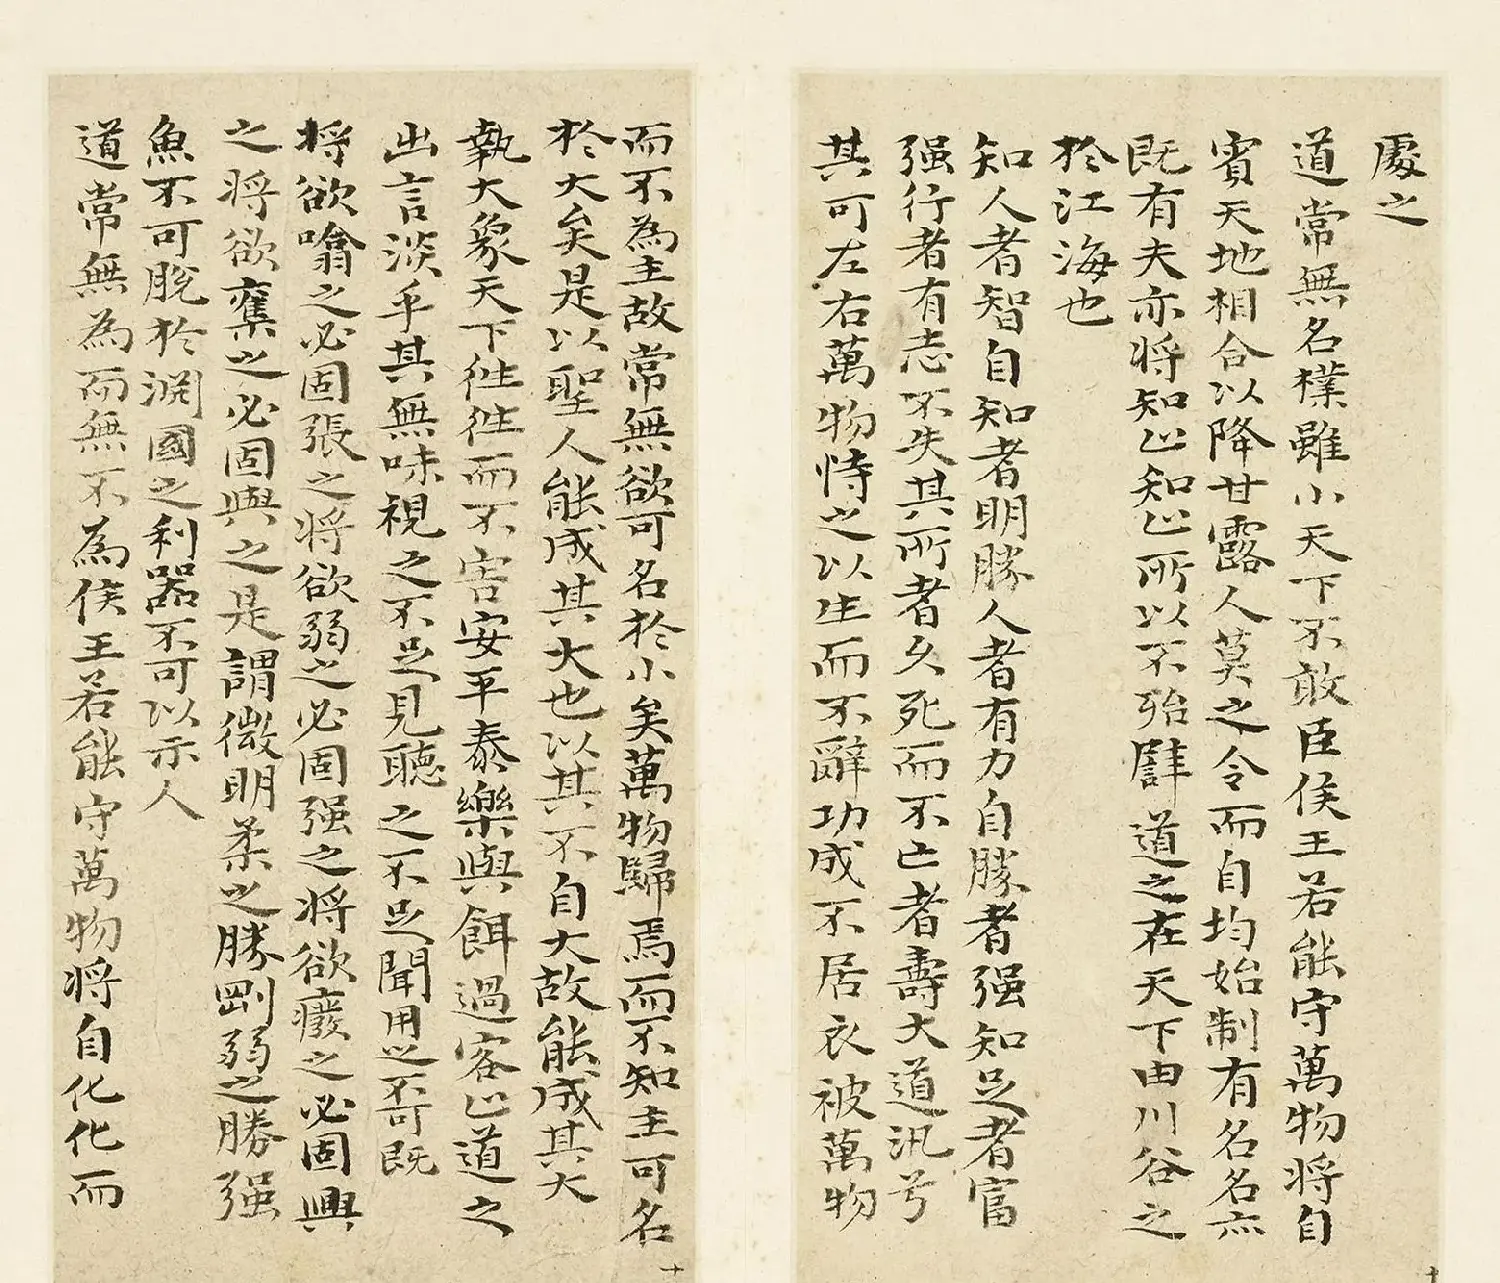 處之
道常無名樸雖小天下不敢臣侯王若能守萬物將自
賓天地相合以降甘露人莫之令而自均始制有名名亦
既有夫亦將知止知止所以不殆譬道之在天下由川谷之
於江海也
知人者智自知者明勝人者有力自勝者强知足者富
强行者有志不失其所者久死而不亡者壽大道汎兮
其可左右萬物恃之以生而不辭功成不居衣被萬物
而不為主故常無欲可名於小矣萬物歸焉而不知主可名
於大矣是以聖人能成其大也以其不自大故能成其大
執大象天下往往而不害安平泰樂與餌過客止道之
出言淡乎其無味視之不足見聽之不足聞用之不可既
將欲噏之必固張之將欲弱之必固强之將欲廢之必固興
之將欲奪之必固與之是謂微明柔之勝剛弱之勝强
魚不可脫於淵國之利器不可以示人
道常無為而無不為侯王若能守萬物將自化化而
十